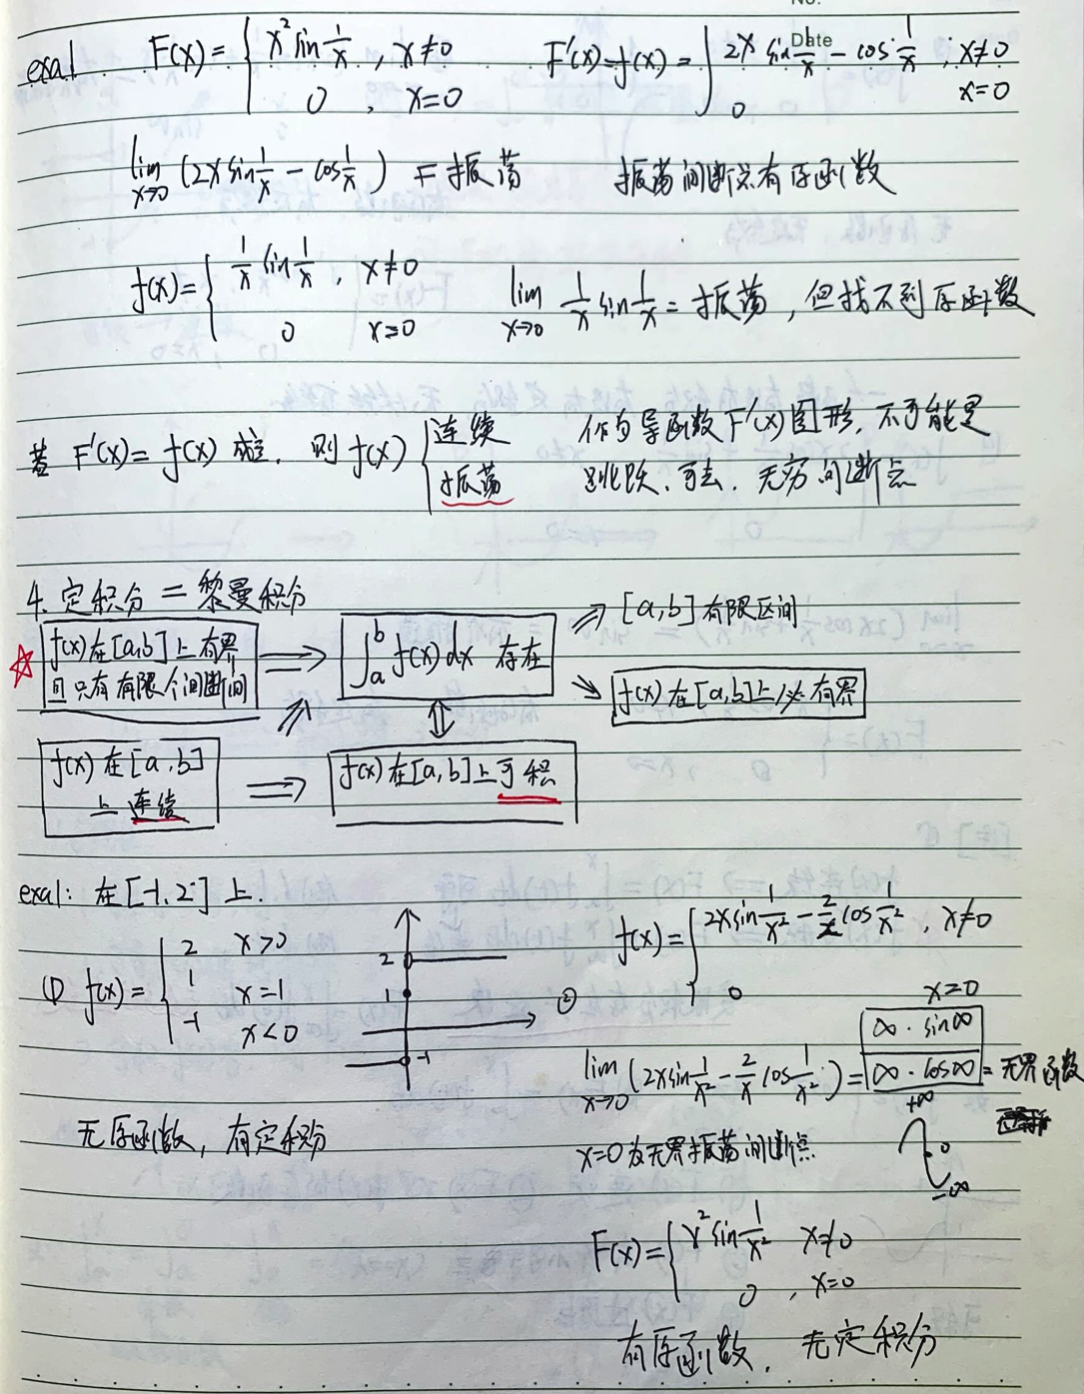 No.
Date
exa1 F(x)={ x² sin 1/x , x≠0
0 , x=0
F'(x)=f(x)={ 2x sin 1/x - cos 1/x , x≠0
0 x=0
lim x→0 (2x sin 1/x - cos 1/x) = 振荡 振荡间断点有原函数
f(x)={ 1/x sin 1/x , x≠0
0 x=0
lim x→0 1/x sin 1/x = 振荡, 但找不到原函数
若 F'(x)=f(x) 成立, 则 f(x) { 连续
振荡
作为导函数F'(x)图形, 不可能是
跳跃、可去、无穷间断点
4. 定积分 = 黎曼积分
f(x)在[a,b]上有界
且只有有限个间断间
⇒ ∫ₐᵇ f(x)dx 存在
⇒ [a,b]有限区间
↘ f(x)在[a,b]上必有界
⇗ ⇕
f(x)在[a,b]
上连续
⇒ f(x)在[a,b]上可积
exa1: 在[-1,2]上.
① f(x)={ 2 x>0
1 x=1
-1 x<0
2
1
-1
无原函数, 有定积分
② f(x)={ 2x sin 1/x² - 2/x cos 1/x² , x≠0
0 x=0
lim x→0 (2x sin 1/x² - 2/x cos 1/x²) = ∞·sin∞
∞·cos∞ = 无界函数
+∞
0
-∞
x=0为无界振荡间断点
F(x)={ x² sin 1/x² x≠0
0 , x=0
有原函数, 无定积分